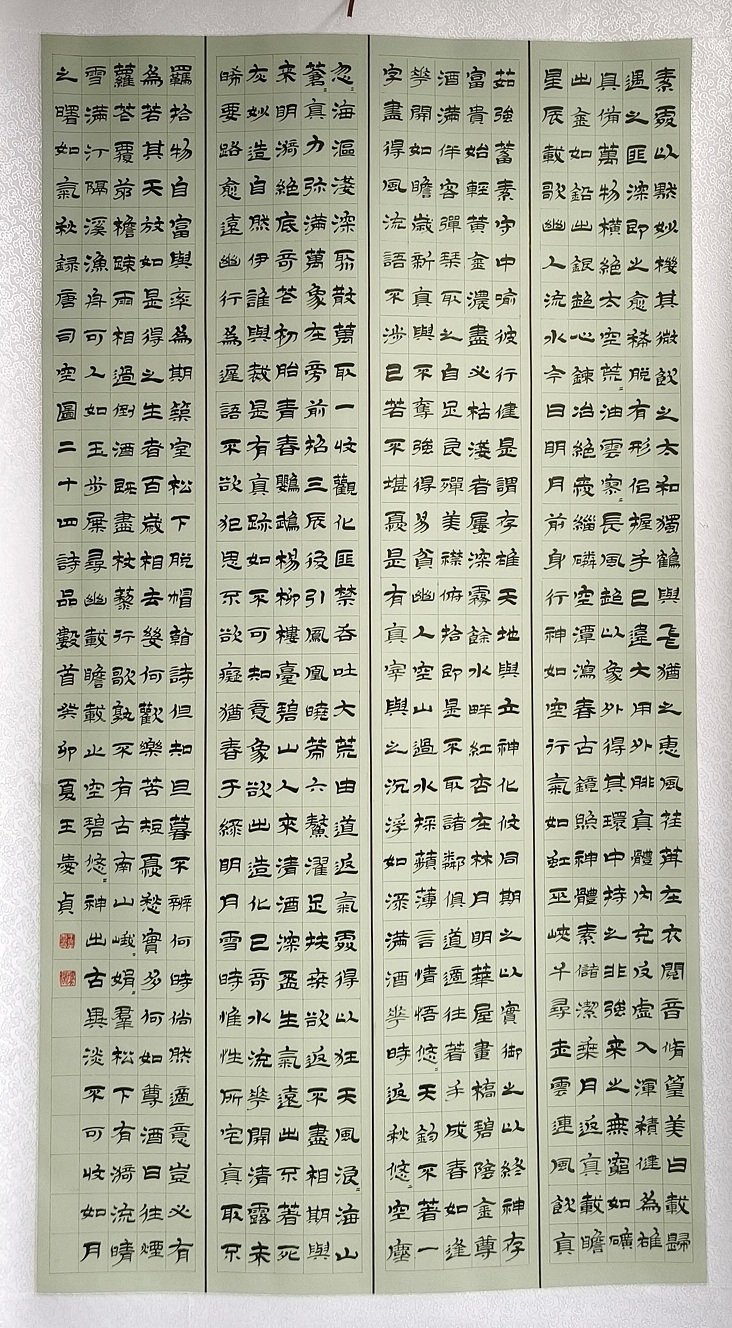 素處以默妙機其微飲之太和獨鶴與飛猶之惠風荏苒在衣閱音脩篁美曰載歸
遇之匪深即之愈稀脫有形似握手已違大用外腓真體內充反虛入渾積健為雄
具備萬物橫絕太空荒〃油雲寥〃長風超以象外得其環中持之非強來之無窮如礦
出金如鉛出銀超心鍊冶絕愛緇磷空潭瀉春古鏡照神體素儲潔乘月返真載瞻
星辰載歌幽人流水今日明月前身行神如空行氣如虹巫峽千尋走雲連風飲真
茹強蓄素守中喻彼行健是謂存雄天地與立神化攸同期之以實御之以終神存
富貴始輕黃金濃盡必枯淺者屢深霧餘水畔紅杏在林月明華屋畫橋碧陰金尊
酒滿伴客彈琴取之自足良殫美襟俯拾即是不取諸鄰俱道適往著手成春如逢
花開如瞻歲新真與不奪強得易貧幽人空山過水採蘋薄言情悟悠〃天鈞不著一
字盡得風流語不涉己若不堪憂是有真宰與之沉浮如淥滿酒花時返秋悠〃空塵
忽〃海漚淺深聚散萬取一收觀化匪禁吞吐大荒由道返氣處得以狂天風浪〃海山
蒼〃真力弥滿萬象在旁前招三辰後引鳳凰曉策六鰲濯足扶桑欲返不盡相期與
來明漪絕底奇花初胎青春鸚鵡楊柳樓臺碧山人來清酒深盃生氣遠出不著死
灰妙造自然伊誰與裁是有真跡如不可知意象欲出造化已奇水流花開清露未
晞要路愈遠幽行為遲語不欲犯思不欲癡猶春于綠明月雪時惟性所宅真取不
羈拾物自富與率為期築室松下脫帽看詩但知旦暮不辨何時倘然適意豈必有
為若其天放如是得之生者百歲相去幾何歡樂苦短憂愁實多何如尊酒日往煙
蘿花覆茆檐疎雨相過倒酒既盡杖藜行歌孰不有古南山峨〃娟〃羣松下有漪流晴
雪滿汀隔溪漁舟可人如玉步屧尋幽載瞻載止空碧悠〃神出古異淡不可收如月
之曙如氣秋錄唐司空圖二十四詩品數首癸卯夏王愛貞